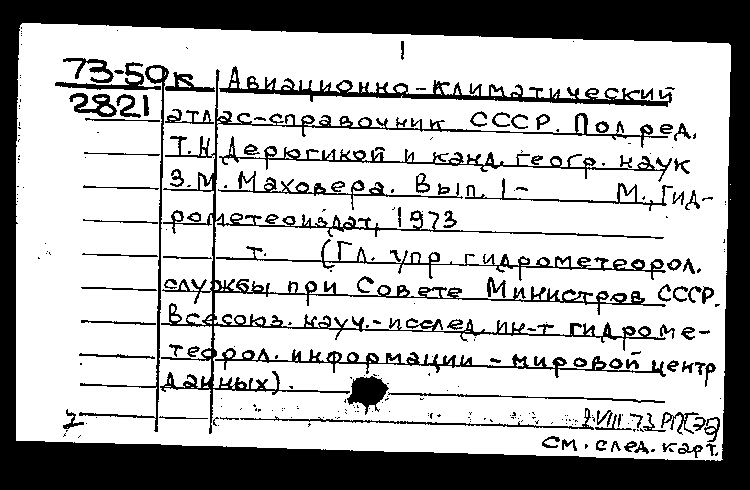 1
73-50к Авиационно-климатический
2821 атлас-справочник СССР. Под ред.
Т.Н. Дерюгиной и канд. геогр. наук
З.М. Маховера. Вып. 1- М., Гид-
рометеоиздат, 1973
т. (Гл. упр. гидрометеорол.
службы при Совете Министров СССР.
Всесоюз. науч.-исслед. ин-т гидроме-
теорол. информации - мировой центр
данных).
2 VIII 73
см. след. карт.